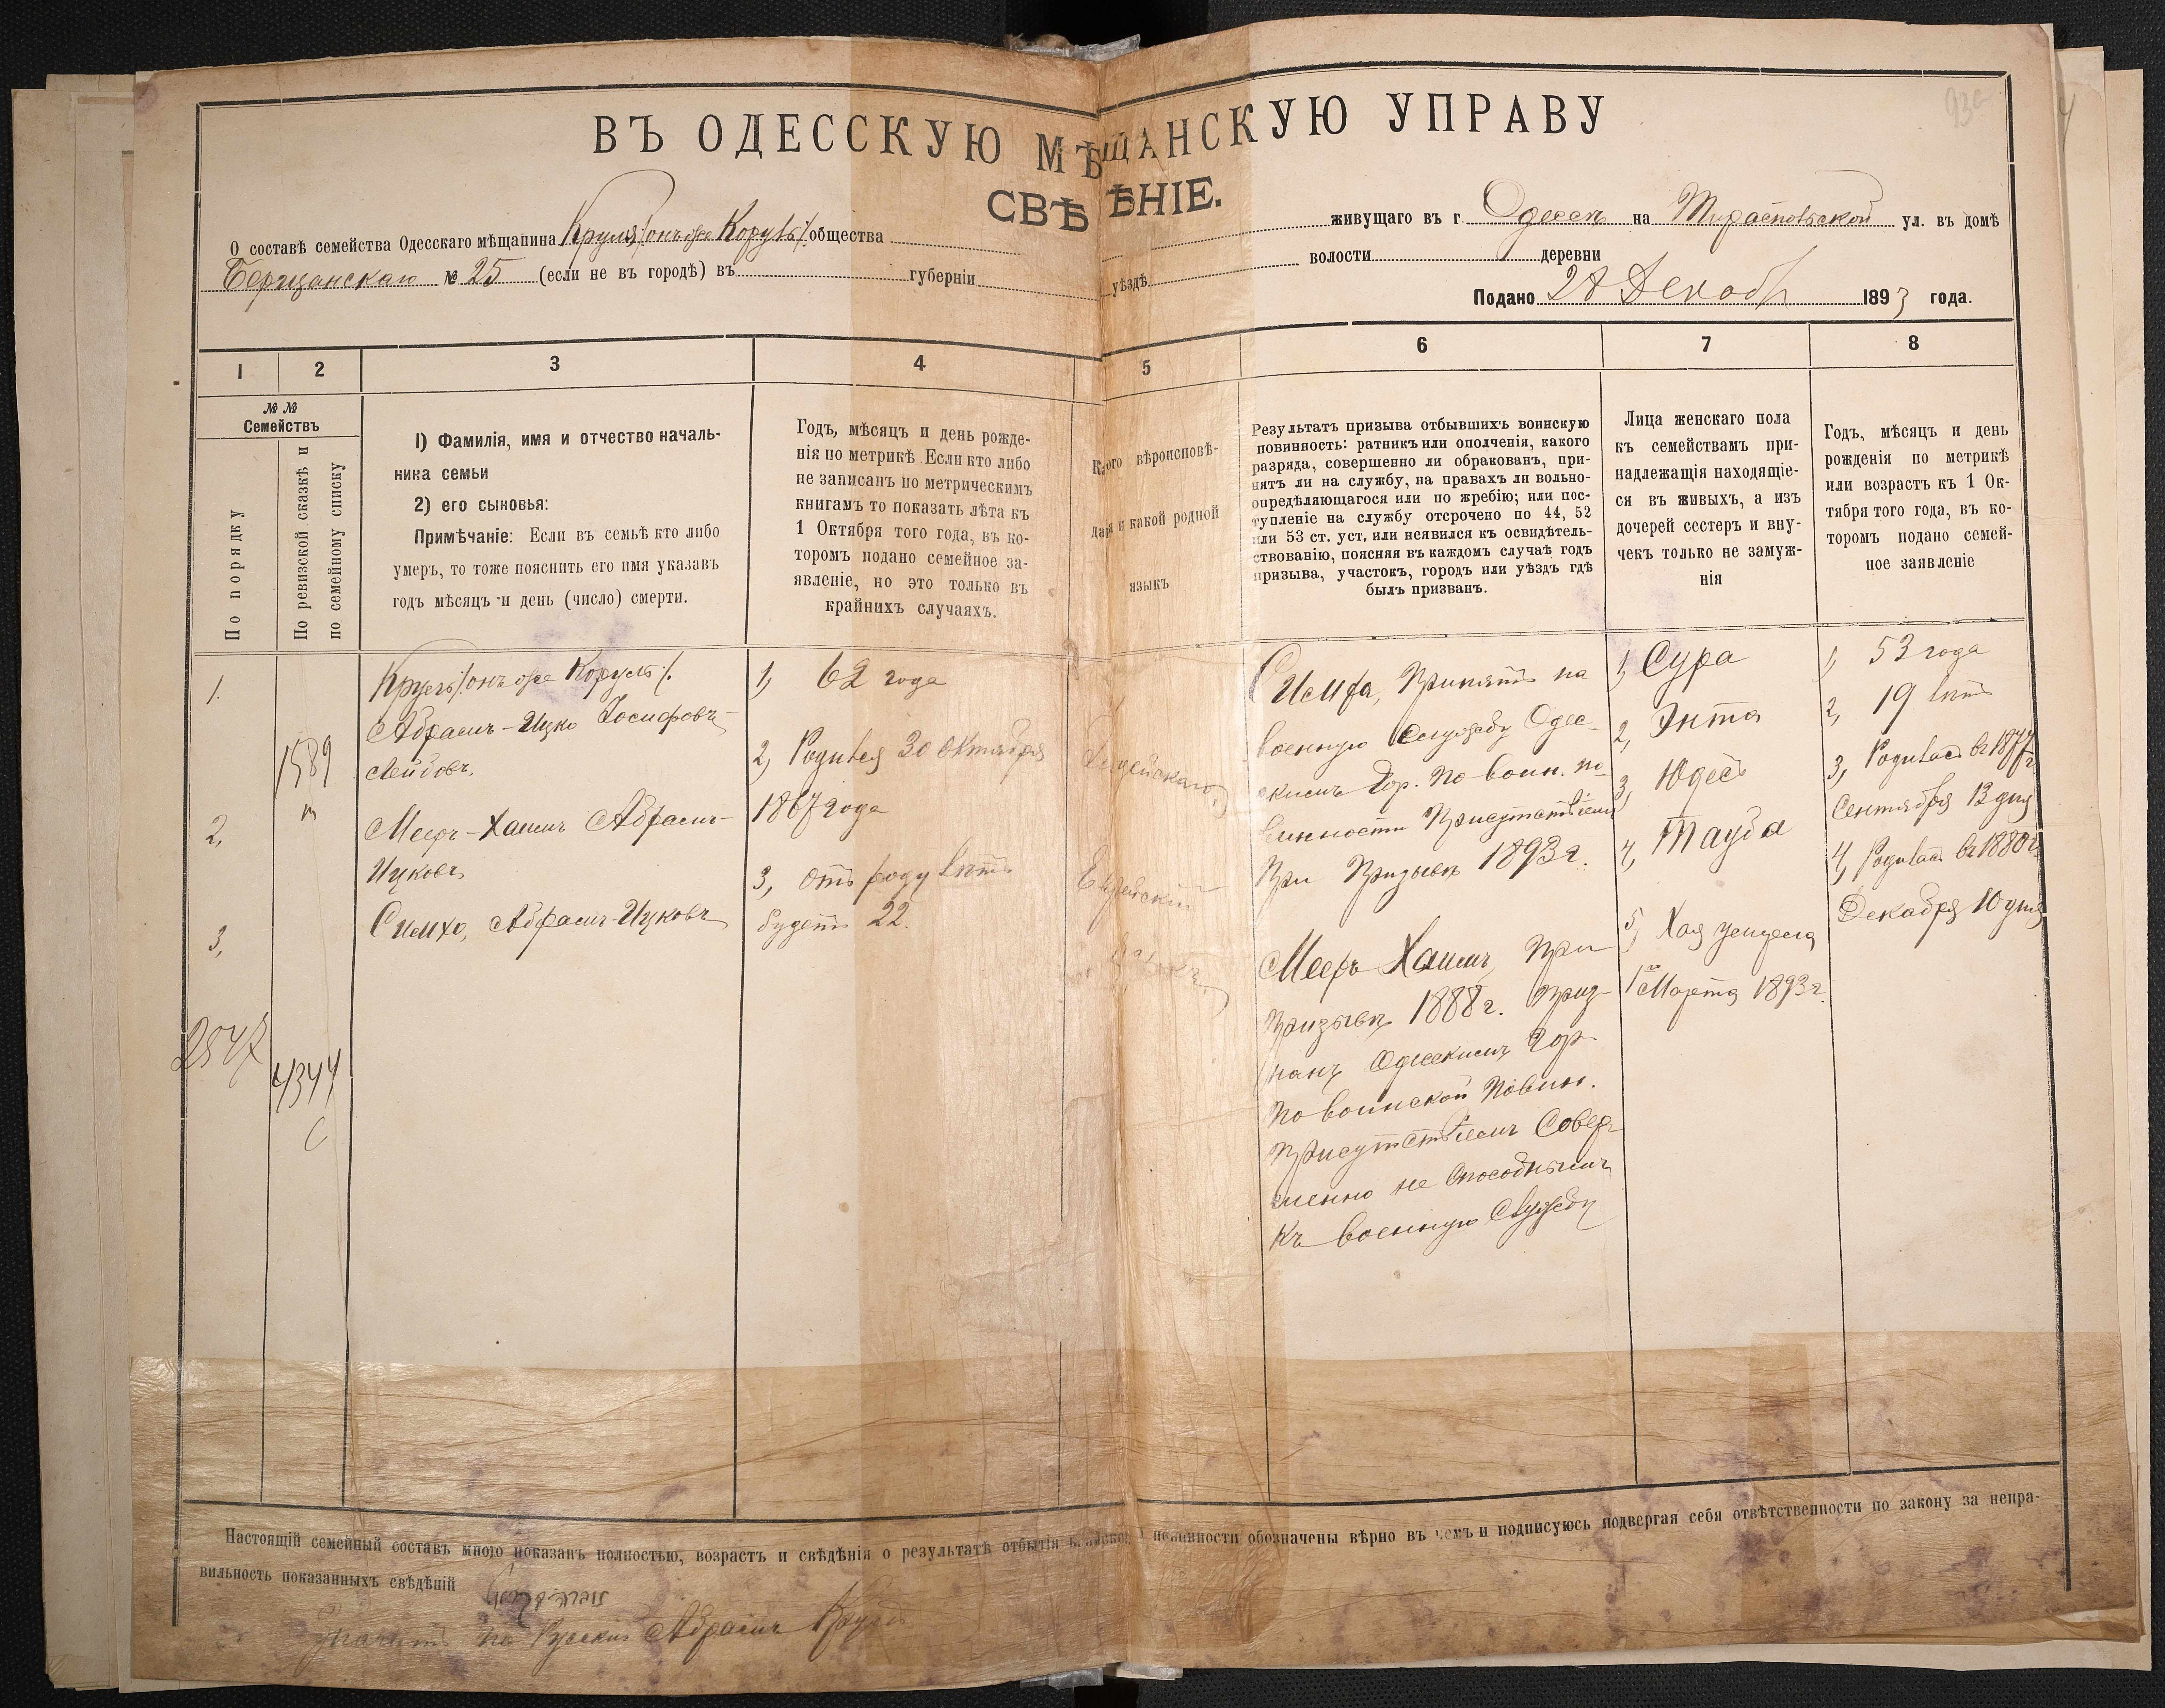 ВЪ ОДЕССКУЮ МѢЩАНСКУЮ УПРАВУ
СВѢДѢНІЕ.
О составѣ семейства Одесскаго мѣщанина Круль /: онъ же Коруль :/ общества
живущаго въ г. Одессѣ на Тираспольской ул. въ домѣ
Бержанскаго № 25 (если не въ городѣ) въ губерніи уѣздѣ волости деревни
Подано Декаб 1893 года.
1 2 3 4 5 6 7 8
№ №
Семействъ
По порядку
По ревизской сказкѣ и
по семейному списку
1) Фамилія, имя и отчество началь-
ника семьи
2) его сыновья:
Примѣчаніе: Если въ семьѣ кто либо
умеръ, то тоже пояснить его имя указавъ
годъ мѣсяцъ и день (число) смерти.
Годъ, мѣсяцъ и день рожде-
нія по метрикѣ. Если кто либо
не записанъ по метрическимъ
книгамъ то показать лѣта къ
1 Октября того года, въ ко-
торомъ подано семейное за-
явленіе, но это только въ
крайнихъ случаяхъ.
Какого вѣроисповѣ-
данія и какой родной
языкъ
Результатъ призыва отбывшихъ воинскую
повинность: ратникъ или ополченія, какого
разряда, совершенно ли обракованъ, при-
нятъ ли на службу, на правахъ ли вольно-
опредѣляющагося или по жребію; или пос-
тупленіе на службу отсрочено по 44, 52
или 53 ст. уст. или неявился къ освидѣтель-
ствованію, поясняя въ каждомъ случаѣ годъ
призыва, участокъ, городъ или уѣздъ гдѣ
былъ призванъ.
Лица женскаго пола
къ семействамъ при-
надлежащія находящіе-
ся въ живыхъ, а изъ
дочерей сестеръ и вну-
чекъ только не замуж-
нія
Годъ, мѣсяцъ и день
рожденія по метрикѣ
или возрастъ къ 1 Ок-
тября того года, въ ко-
торомъ подано семей-
ное заявленіе
1.
2,
3,
2547
1589
м
4344
С
Круль /: онъ же Коруль :/
Абрамъ-Ицко Іосифовъ-
Лейбовъ.
Мееръ-Хаимъ Абрамъ-
Ицковъ,
Симхо, Абрамъ-Ицковъ
1, 62 года
2, Родился 30 Октября
1867 года
3, отъ роду лѣтъ
будетъ 22.
Іудейскаго,
Еврейскій
языкъ.
Симха, Принятъ на
военную Службу Одес-
скимъ Гор. по воин. по-
винности Присутствіемъ
При Призывѣ 1893 г.
Мееръ Хаимъ, При
Призывѣ 1888 г. Приз-
нанъ Одесскимъ Гор.
по воинской Повин.
Присутствіемъ Совер-
шенно не Способнымъ
Къ военную Службу
1, Сура
2, Энта
3, Юдесъ
4, Тауба
5, Хая умерла
1го Марта 1893 г.
1, 53 года
2, 19 лѣтъ
3, Родилась въ 1877 г.
Сентября 13 дня
4, Родилась въ 1880 г.
Декабря 10 дня
Настоящій семейный составъ мною показанъ полностью, возрастъ и свѣдѣнія о результатѣ отбытія воинской повинности обозначены вѣрно въ чемъ и подписуюсь подвергая себя отвѣтственности по закону за непра-
вильность показанныхъ свѣдѣній
значитъ по Русски Абрамъ Круль